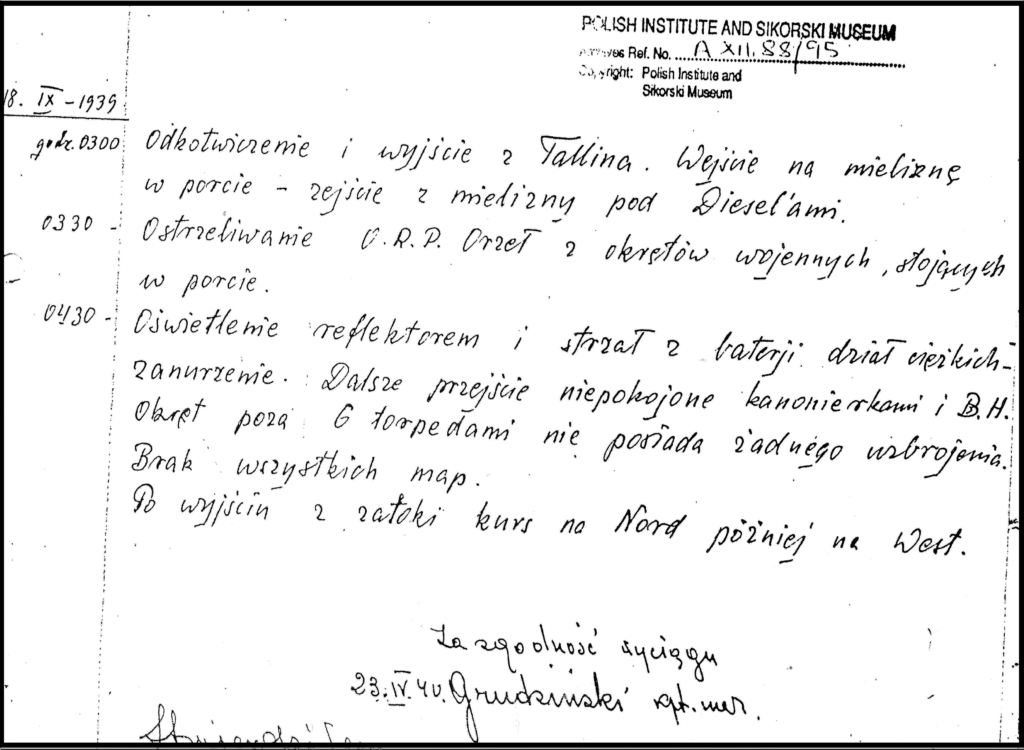 POLISH INSTITUTE AND SIKORSKI MUSEUM
Archives Ref. No. A XII. 88/95
Copyright: Polish Institute and
Sikorski Museum
18. IX - 1939
godz. 0300 Odkotwiczenie i wyjście z Tallina. Wejście na mieliznę
w porcie - zejście z mielizny pod Diesel'ami.
0330 - Ostrzeliwanie O.R.P. Orzeł z okrętów wojennych, stojących
w porcie.
0430 - Oświetlenie reflektorem i strzał z baterji dział ciężkich -
zanurzenie. Dalsze przejście niepokojone kanonierkami i B.H.
Okręt poza 6 torpedami nie posiada żadnego uzbrojenia.
Brak wszystkich map.
Po wyjściu z zatoki kurs na Nord później na West.
Za zgodność wyciągu
23.IV.40. Grudziński kpt. mar.